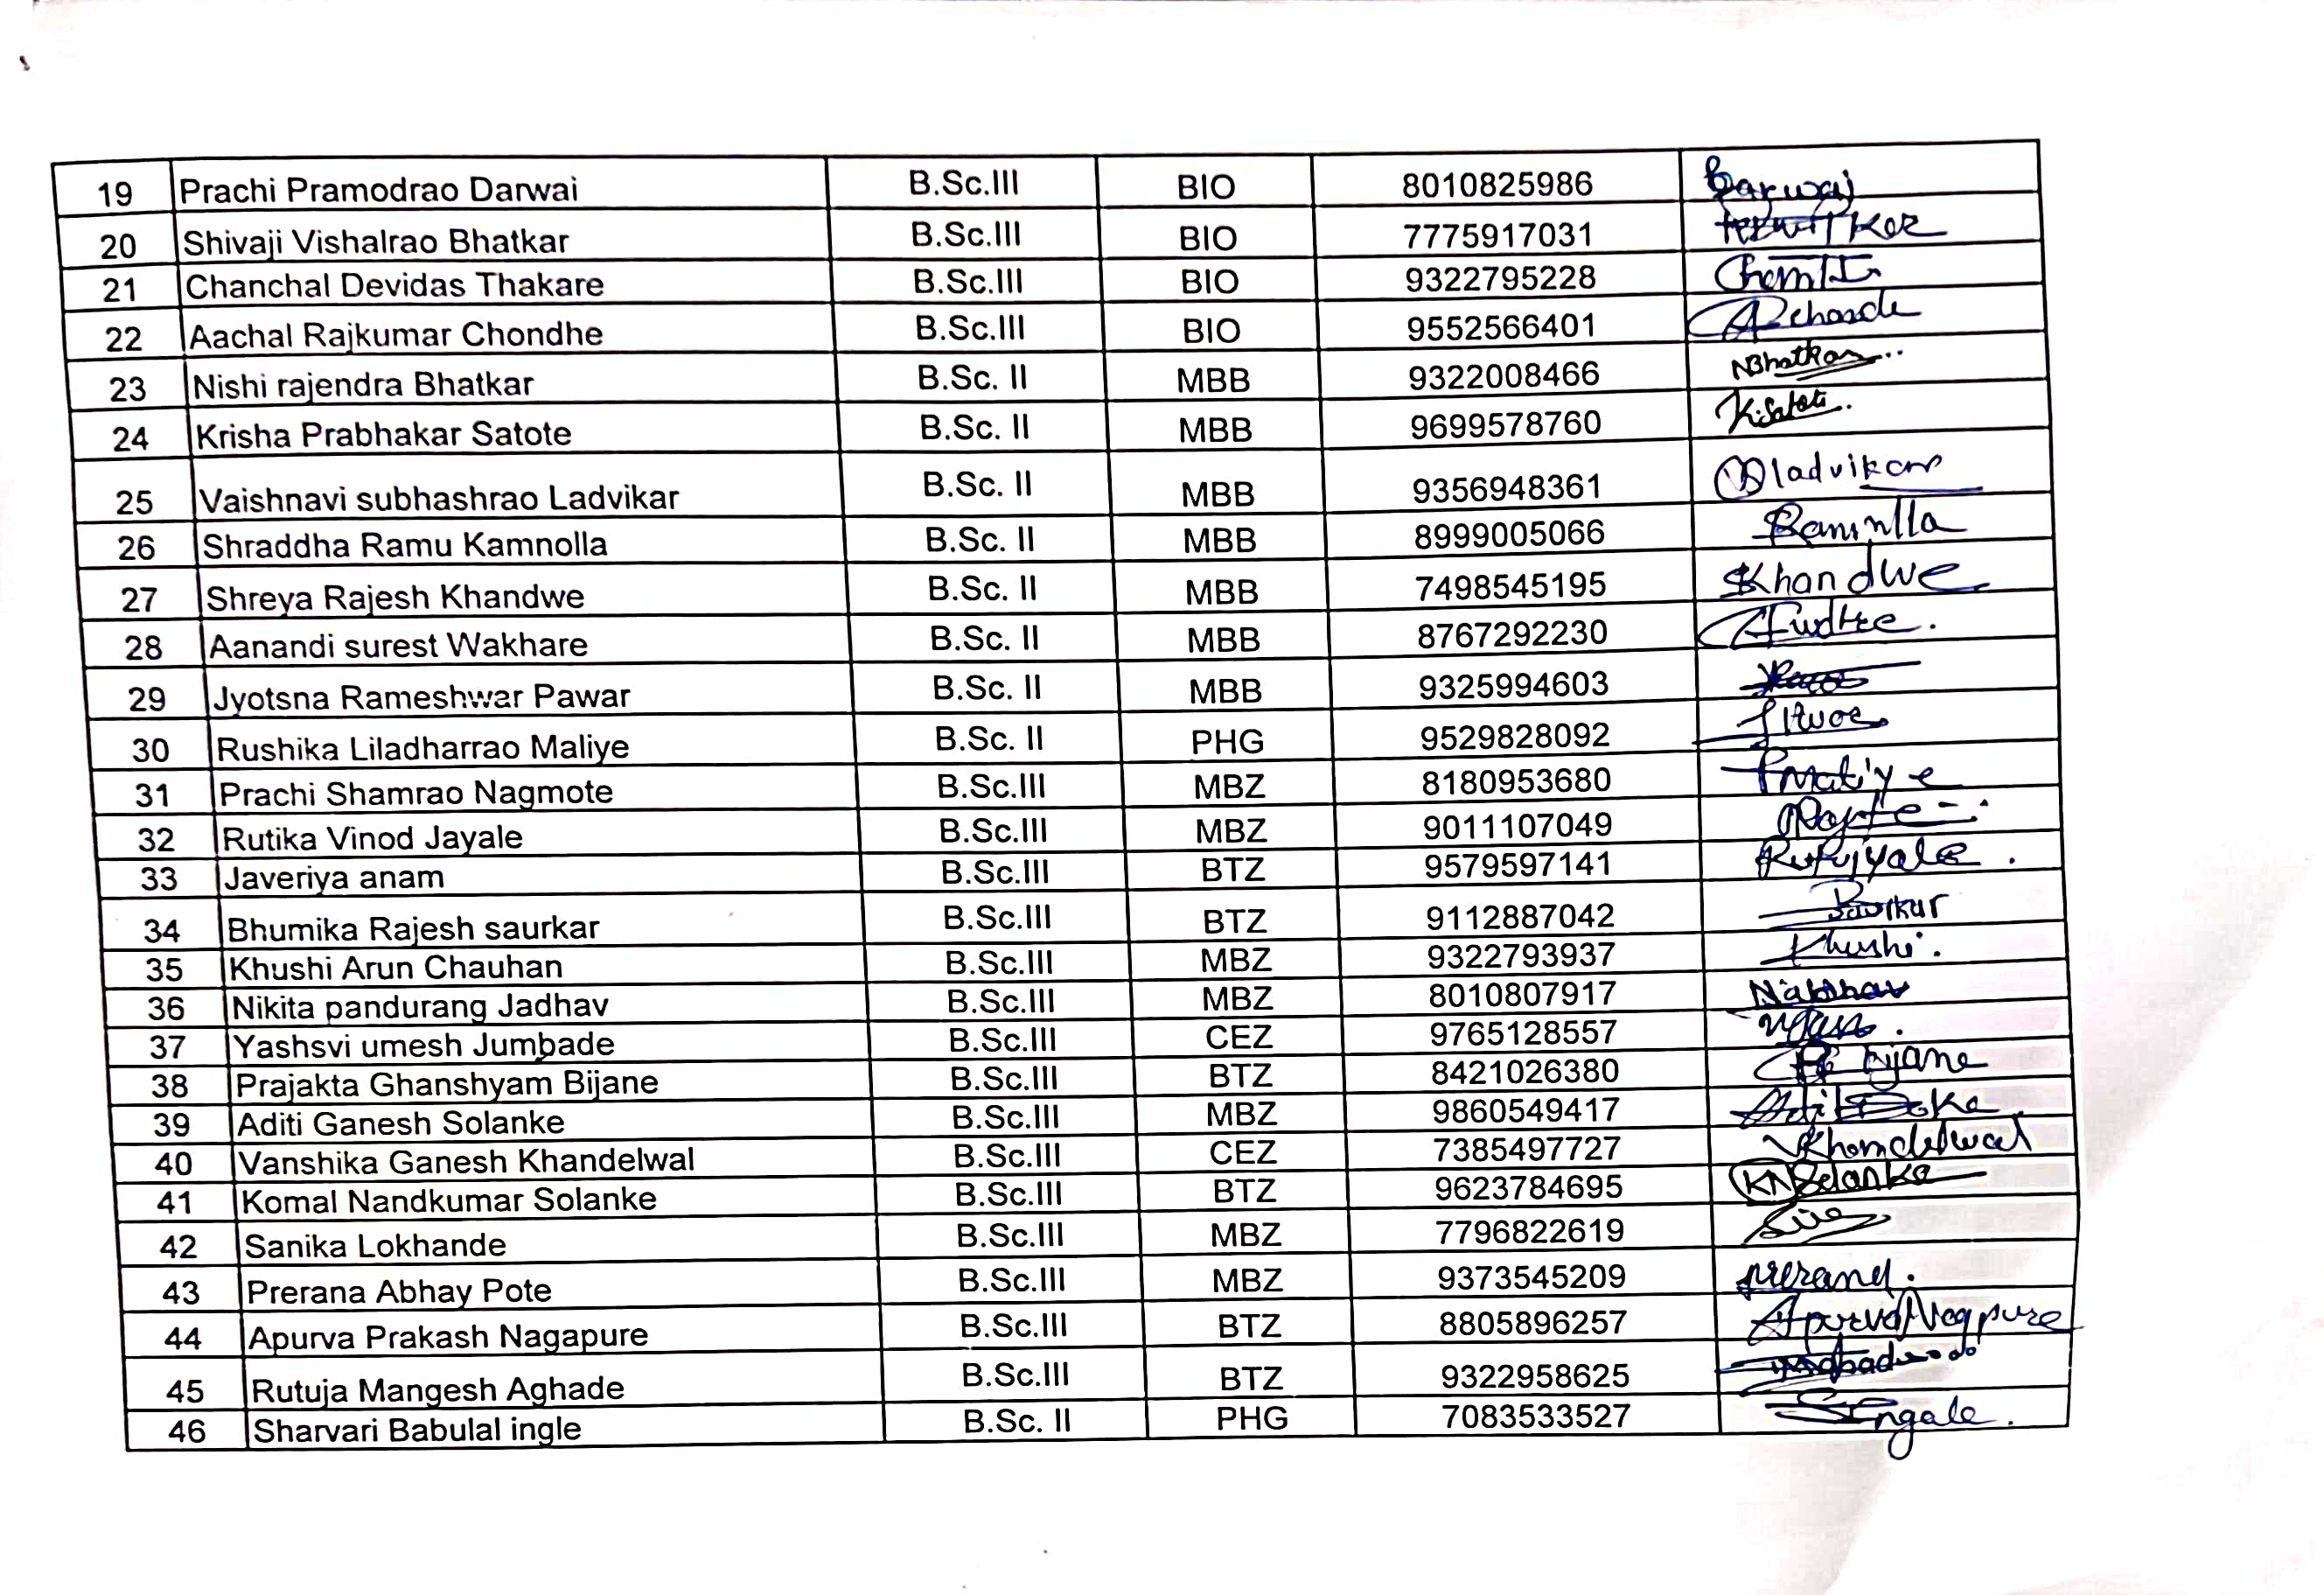 19 Prachi Pramodrao Darwai B.Sc.III BIO 8010825986 Darwai
20 Shivaji Vishalrao Bhatkar B.Sc.III BIO 7775917031
21 Chanchal Devidas Thakare B.Sc.III BIO 9322795228
22 Aachal Rajkumar Chondhe B.Sc.III BIO 9552566401
23 Nishi rajendra Bhatkar B.Sc. II MBB 9322008466 NBhatkar
24 Krisha Prabhakar Satote B.Sc. II MBB 9699578760 K.Satote
25 Vaishnavi subhashrao Ladvikar B.Sc. II MBB 9356948361 ladvikar
26 Shraddha Ramu Kamnolla B.Sc. II MBB 8999005066
27 Shreya Rajesh Khandwe B.Sc. II MBB 7498545195 SKhandwe
28 Aanandi surest Wakhare B.Sc. II MBB 8767292230
29 Jyotsna Rameshwar Pawar B.Sc. II MBB 9325994603
30 Rushika Liladharrao Maliye B.Sc. II PHG 9529828092
31 Prachi Shamrao Nagmote B.Sc.III MBZ 8180953680
32 Rutika Vinod Jayale B.Sc.III MBZ 9011107049
33 Javeriya anam B.Sc.III BTZ 9579597141
34 Bhumika Rajesh saurkar B.Sc.III BTZ 9112887042
35 Khushi Arun Chauhan B.Sc.III MBZ 9322793937 Khushi.
36 Nikita pandurang Jadhav B.Sc.III MBZ 8010807917
37 Yashsvi umesh Jumbade B.Sc.III CEZ 9765128557
38 Prajakta Ghanshyam Bijane B.Sc.III BTZ 8421026380 Bijane
39 Aditi Ganesh Solanke B.Sc.III MBZ 9860549417
40 Vanshika Ganesh Khandelwal B.Sc.III CEZ 7385497727 VKhandelwal
41 Komal Nandkumar Solanke B.Sc.III BTZ 9623784695 KNSolanke
42 Sanika Lokhande B.Sc.III MBZ 7796822619
43 Prerana Abhay Pote B.Sc.III MBZ 9373545209 prerana.
44 Apurva Prakash Nagapure B.Sc.III BTZ 8805896257 ApurvaNagpure
45 Rutuja Mangesh Aghade B.Sc.III BTZ 9322958625
46 Sharvari Babulal ingle B.Sc. II PHG 7083533527 SIngale.